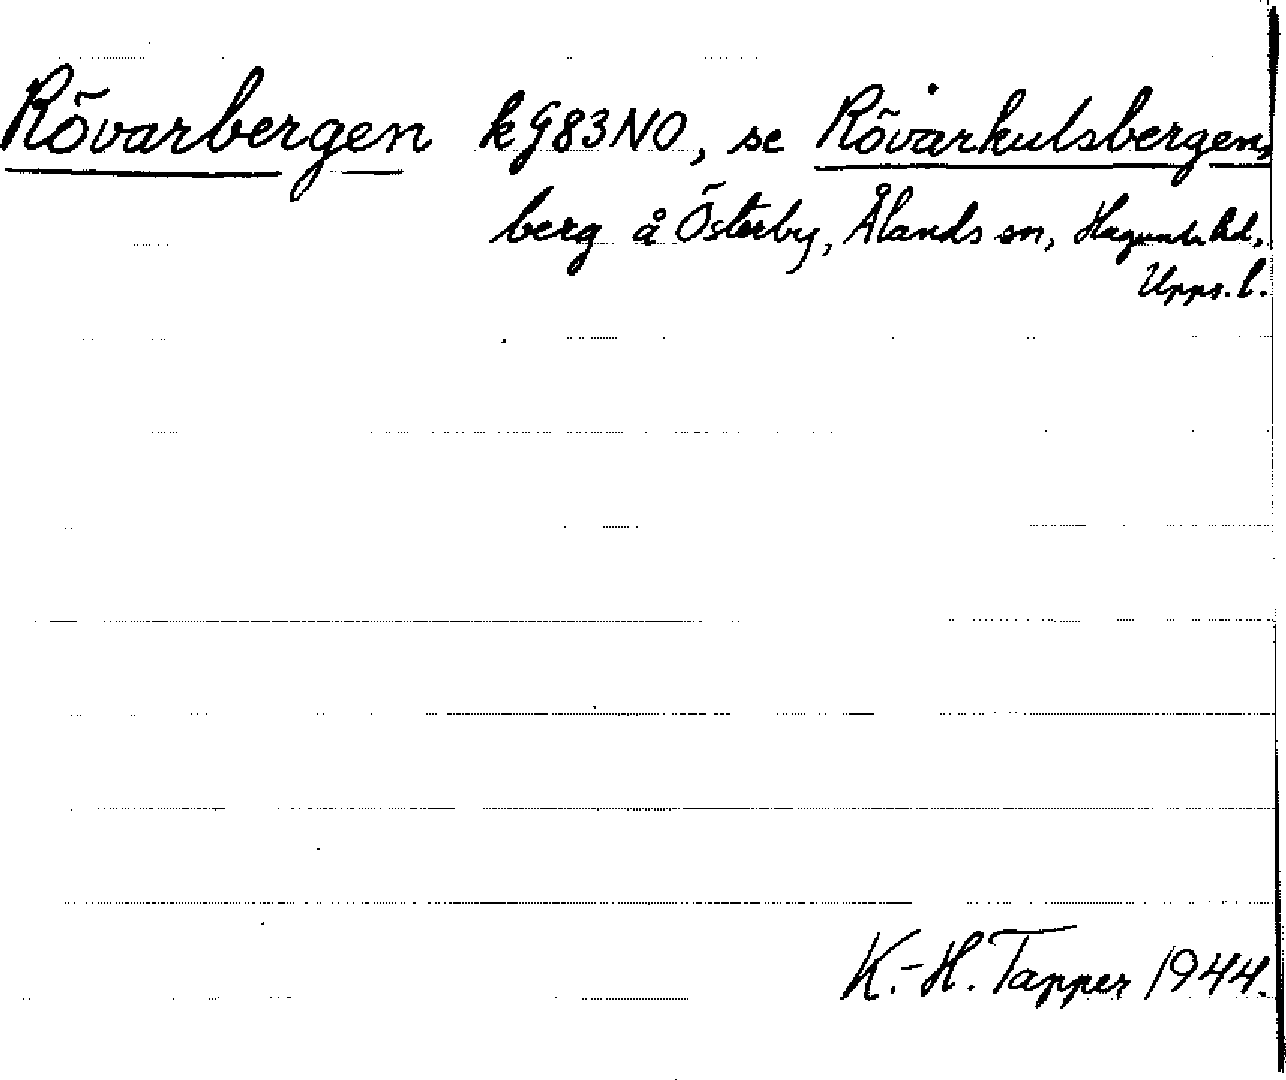 Rövarbergen kG83NO, se Rövarkulsbergen,
berg å Österby, Ålands sn, Hagunda hd,
Upps. l.
K.-H. Tapper 1944.